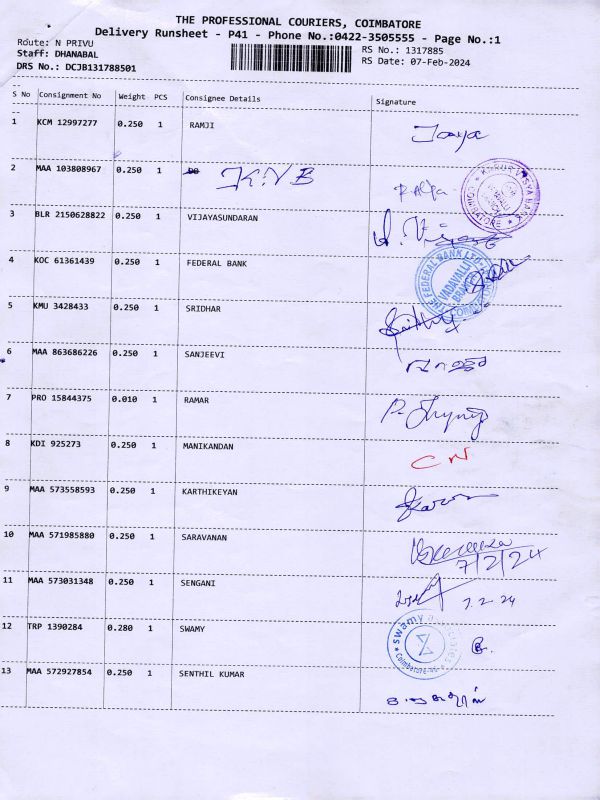 THE PROFESSIONAL COURIERS, COIMBATORE
Delivery Runsheet - P41 - Phone No.:0422-3505555 - Page No.:1
Route: N PRIVU RS No.: 1317885
Staff: DHANABAL RS Date: 07-Feb-2024
DRS No.: DCJB131788501
S No Consignment No Weight PCS Consignee Details Signature
1 KCM 12997277 0.250 1 RAMJI Jaya
2 MAA 103808967 0.250 1 K.V.B
KARUR VYSYA BANK COIMBATORE
3 BLR 2150628822 0.250 1 VIJAYASUNDARAN
4 KOC 61361439 0.250 1 FEDERAL BANK
THE FEDERAL BANK LTD. VADAVALLI BRANCH
5 KMU 3428433 0.250 1 SRIDHAR
6 MAA 863686226 0.250 1 SANJEEVI
7 PRO 15844375 0.010 1 RAMAR
8 KDI 925273 0.250 1 MANIKANDAN CN
9 MAA 573558593 0.250 1 KARTHIKEYAN
10 MAA 571985880 0.250 1 SARAVANAN 7/2/24
11 MAA 573031348 0.250 1 SENGANI 7.2.24
12 TRP 1390284 0.280 1 SWAMY
swamy Coimbatore
13 MAA 572927854 0.250 1 SENTHIL KUMAR